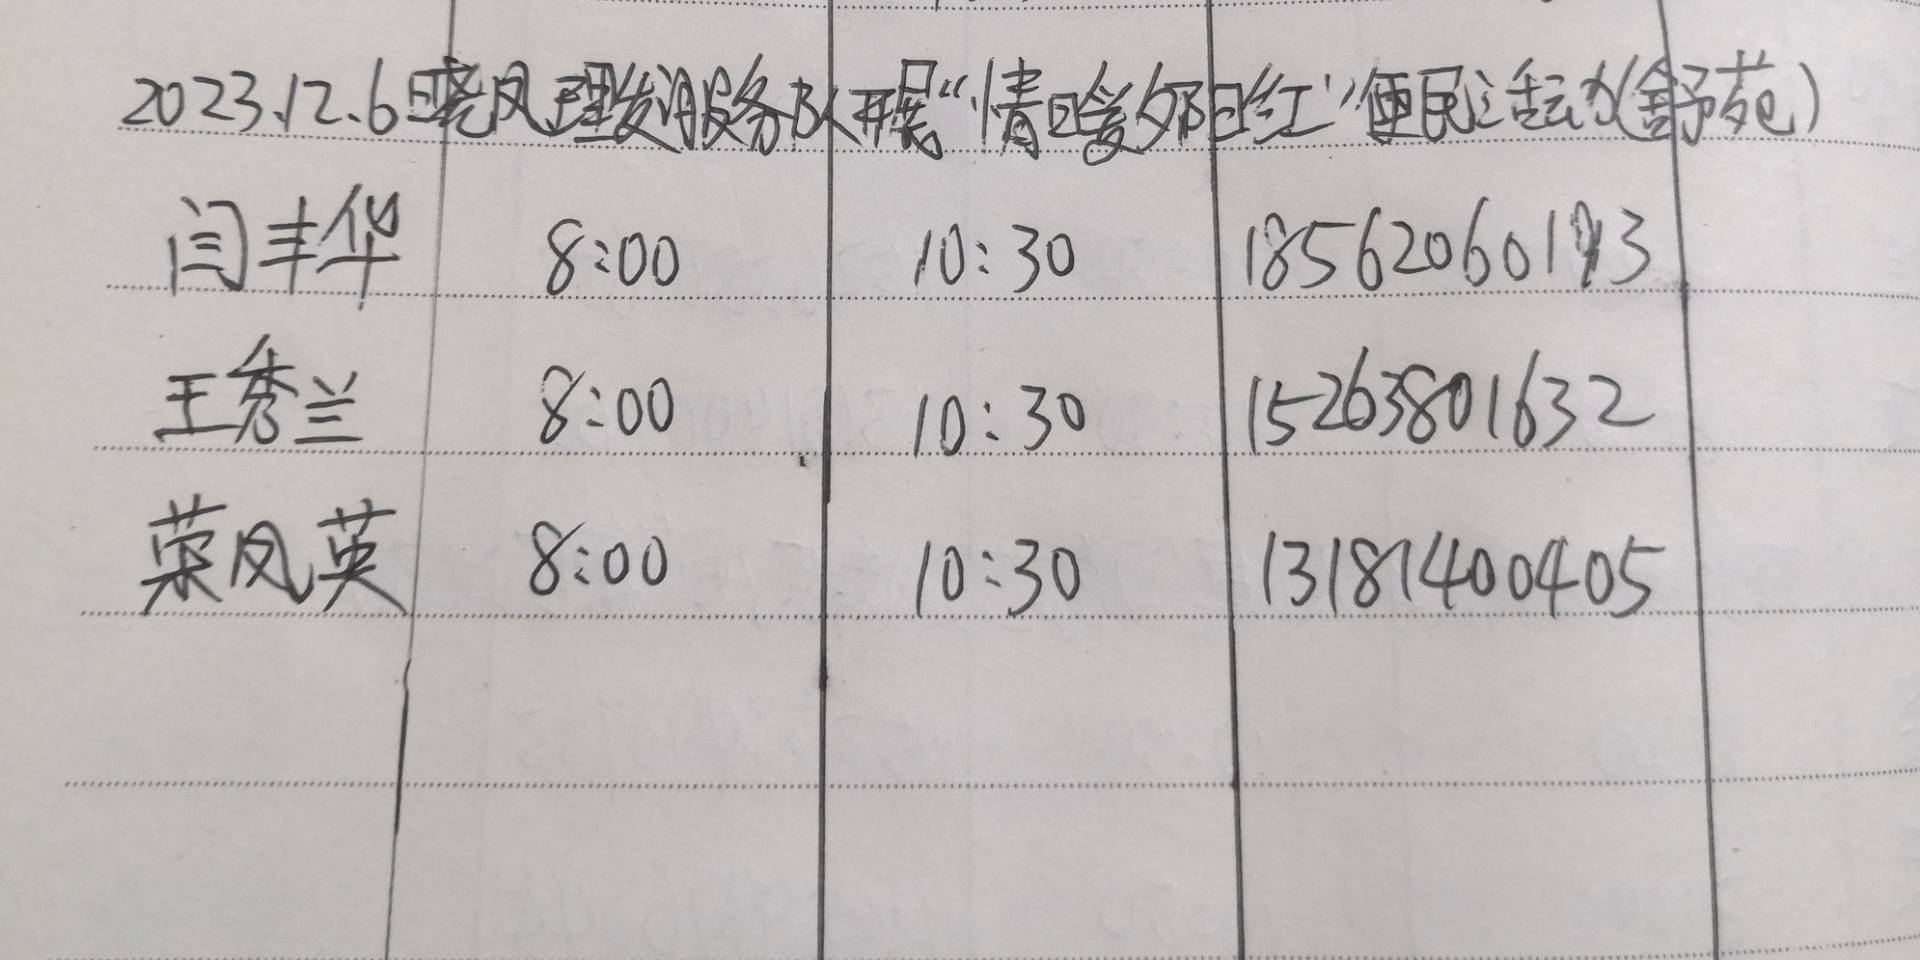 2023.12.6日晓风理发服务队开展“情暖夕阳红”便民活动(舒苑)
闫丰华 8:00 10:30 18562060193
王秀兰 8:00 10:30 15263801632
荣凤英 8:00 10:30 13181400405